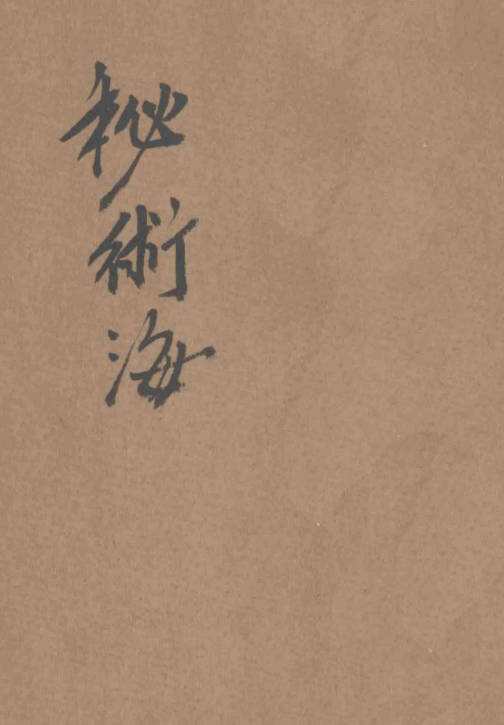 秘術海